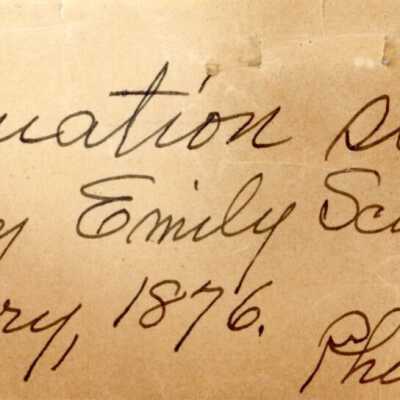 uation s
y Emily Sc
ry, 1876.
Phi